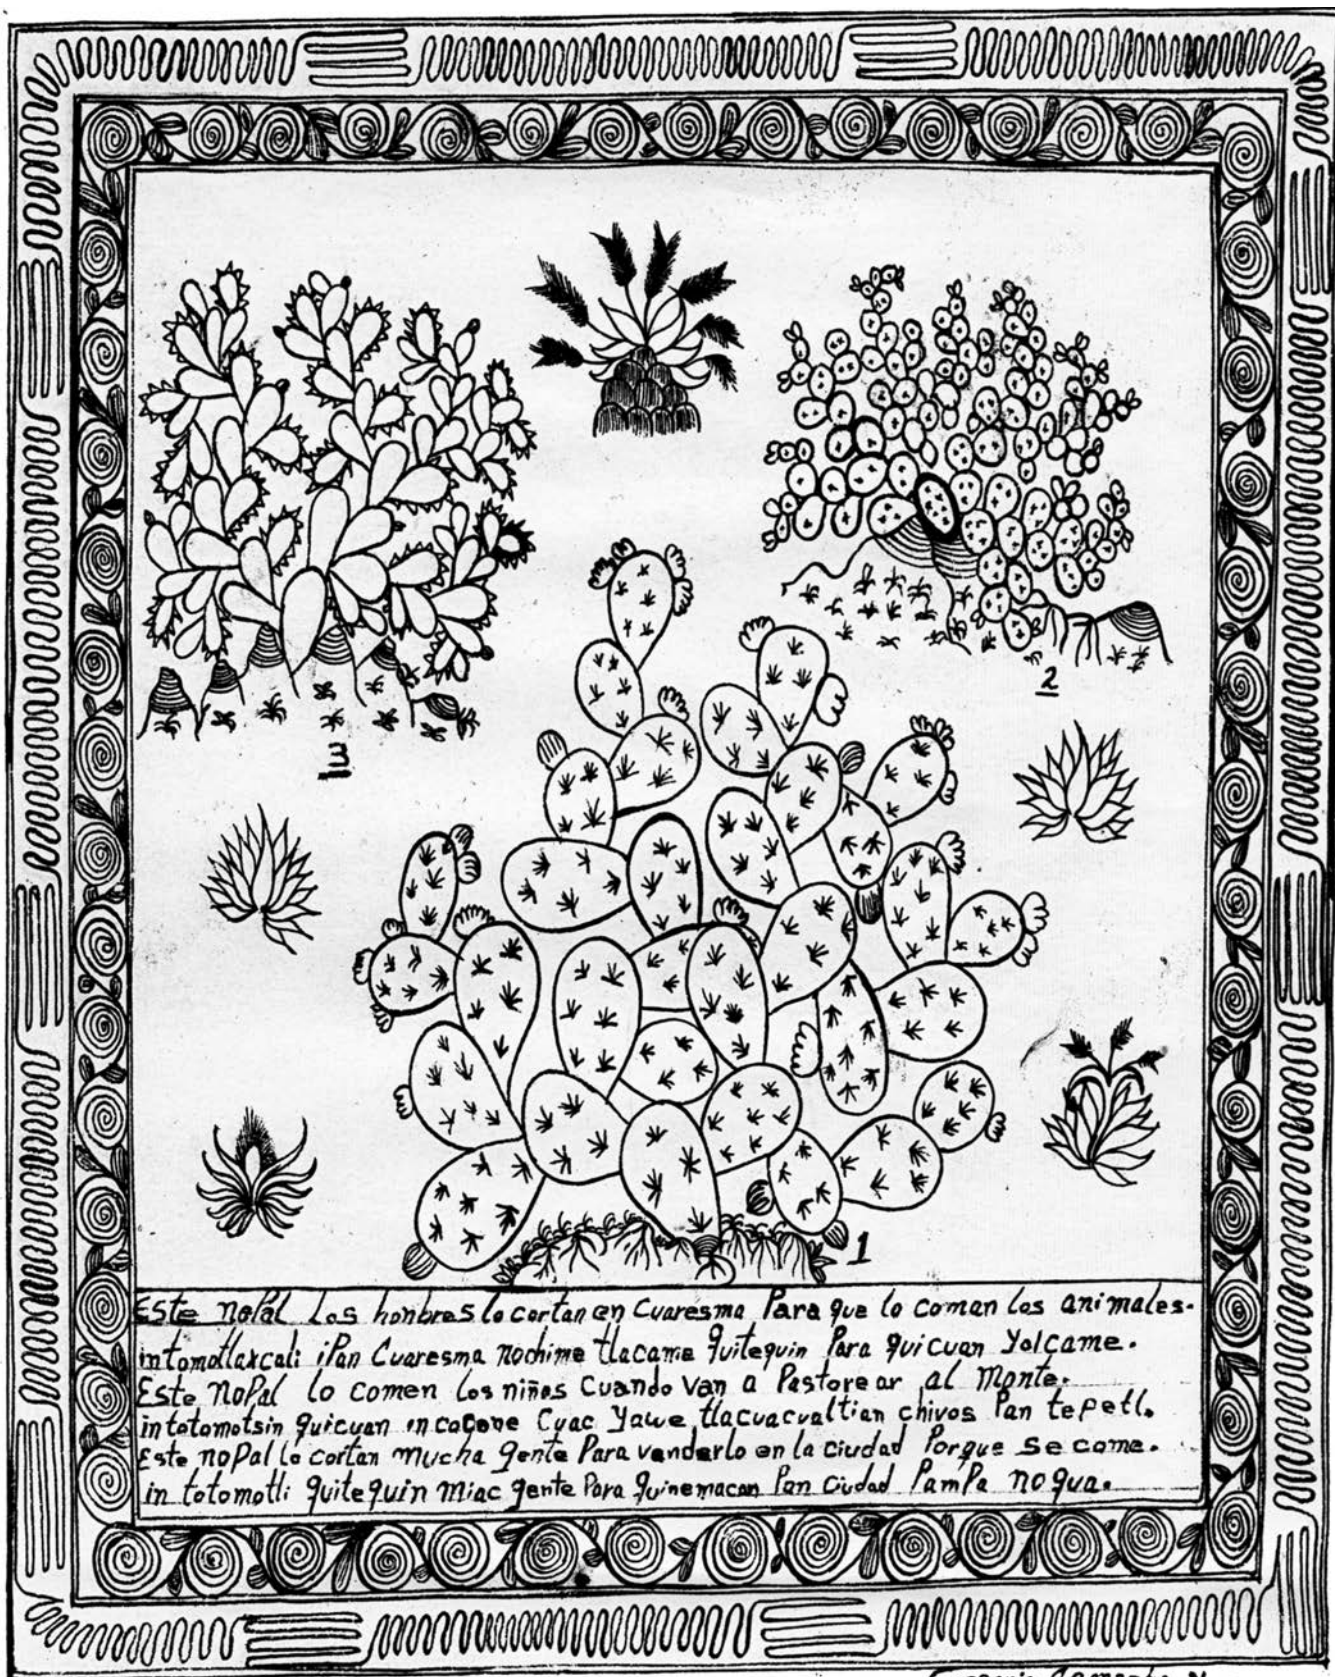 3
2
1
Este noPal Los honbres lo cortan en Cuaresma Para que lo coman los animales.
intomotlaxcali iPan Cuaresma nochime tlacame quitequin Para quicuan Yolcame.
Este noPal lo comen Los niños Cuando van a Pastorear al Monte.
intotomotsin quicuan in cocone Cuac Yawe tlacuacualtian chivos Pan tepetl.
Este noPal lo cortan mucha gente Para venderlo en la ciudad Porque se come.
in totomotli quitequin Miac gente Para quinemacan Pan Ciudad PamPa no qua.